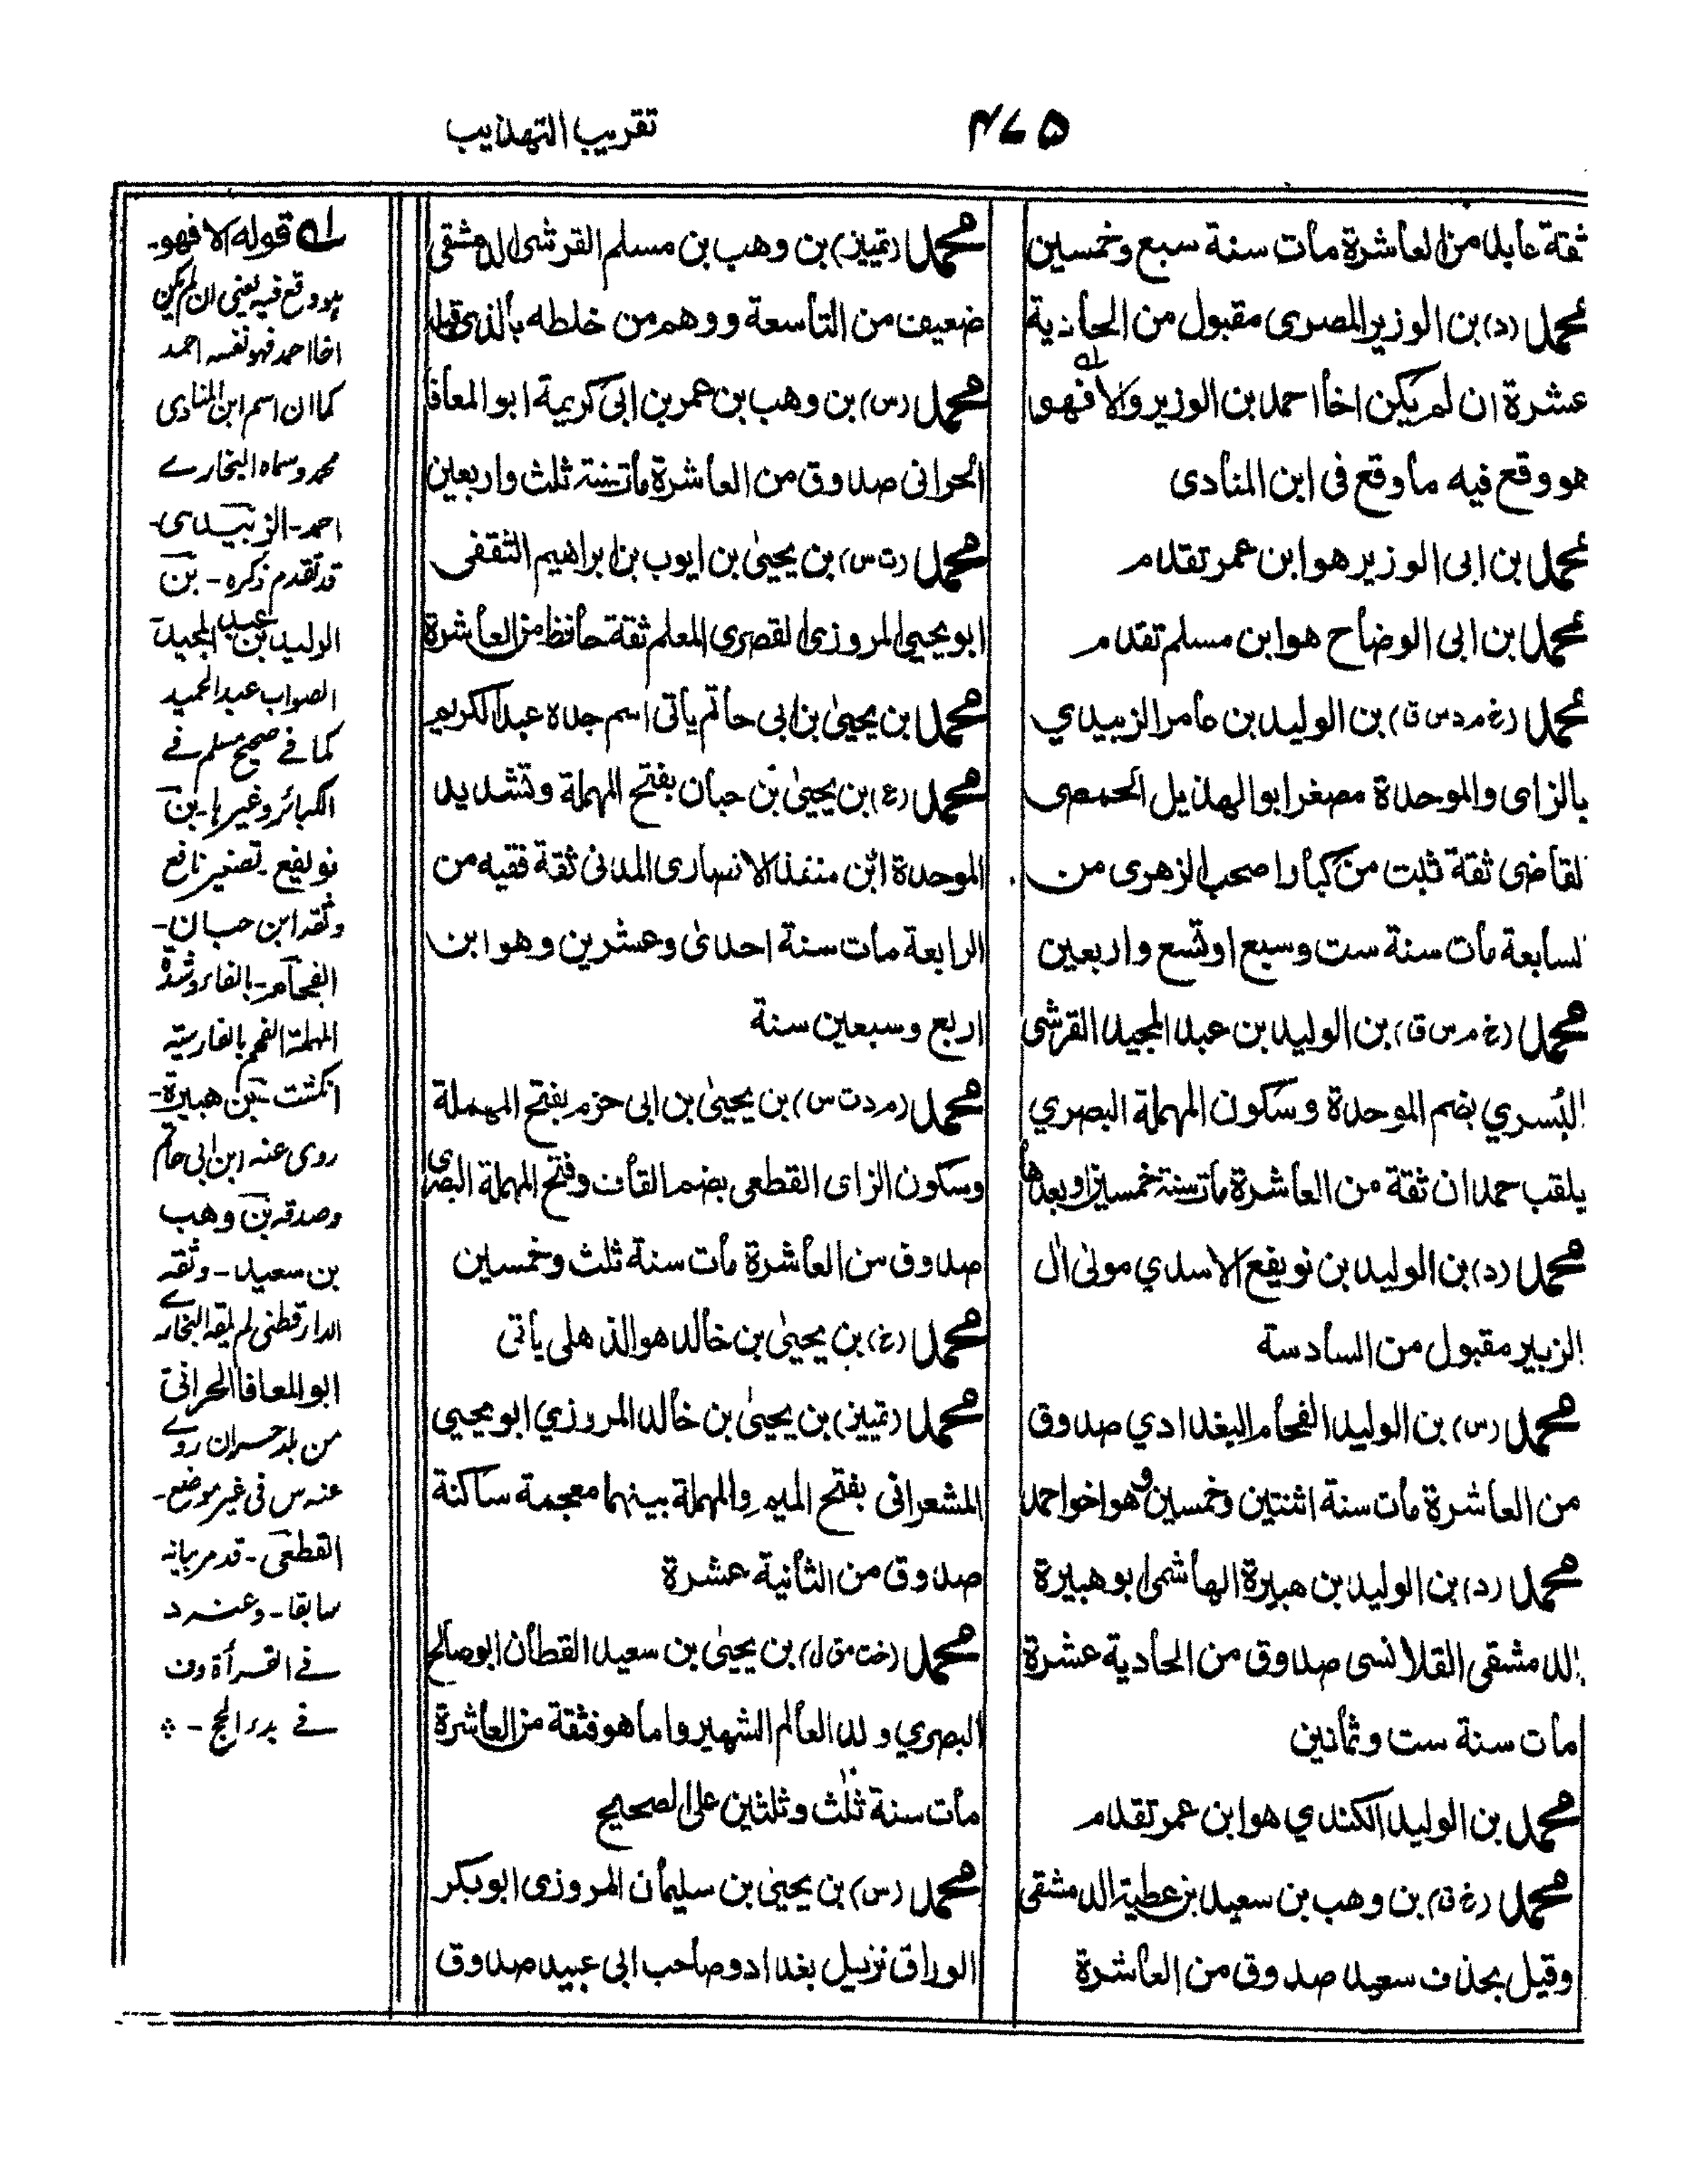 ۴۷۵
تقريب التهذيب
ثقة عابد من العاشرة مات سنة سبع وخمسين
محمد (د) بن الوزير المصرى مقبول من الحادية
عشرة ان لم يكن اخا احمد بن الوزير والا فهو
هو وقع فيه ما وقع فى ابن المنادى
محمد بن ابى الوزير هو ابن عمر تقدم
محمد بن ابى الوضاح هو ابن مسلم تقدم
محمد (خ م د س ق) بن الوليد بن عامر الزبيدي
بالزاى والموحدة مصغر ابو الهذيل الحمصى
لقاضى ثقة ثبت من كبار اصحب الزهرى من
لسابعة مات سنة ست وسبع او تسع واربعين
محمد (خ م س ق) بن الوليد بن عبد المجيد القرشى
البُسري بضم الموحدة وسكون المهملة البصري
يلقب حمدان ثقة من العاشرة مات سنة خمسين او بعدها
محمد (د) بن الوليد بن نويفع الاسدي مولى ال
الزبير مقبول من السادسة
محمد (س) بن الوليد الفحام البغدادي صدوق
من العاشرة مات سنة اثنتين وخمسين وهو اخو احمد
محمد (د) بن الوليد بن هبيرة الهاشمى ابو هبيرة
الدمشقى القلانسى صدوق من الحادية عشرة
مات سنة ست وثمانين
محمد بن الوليد الكندي هو ابن عمر تقدم
محمد (خ ق) بن وهب بن سعيد بن عطية الدمشقى
وقيل بحذف سعيد صدوق من العاشرة
محمد (تمييز) بن وهب بن مسلم القرشى الدمشقى
ضعيف من التاسعة ووهم من خلطه بالذى قبله
محمد (س) بن وهب بن عمر بن ابى كريمة ابو المعافا
الحرانى صدوق من العاشرة مات سنة ثلث واربعين
محمد (ت س) بن يحيىٰ بن ايوب بن ابراهيم الثقفى
ابو يحيى المروزى القصرى المعلم ثقة حافظ من العاشرة
محمد بن يحيىٰ بن ابى حاتم ياتى اسم جده عبد الكريم
محمد (ع) بن يحيىٰ بن حبان بفتح المهملة وتشديد
الموحدة ابن منقذ الانصارى المدنى ثقة فقيه من
الرابعة مات سنة احدىٰ وعشرين وهو ابن
اربع وسبعين سنة
محمد (م د ت س) بن يحيىٰ بن ابى حزم بفتح المهملة
وسكون الزاى القطعى بضم القاف وفتح المهملة البصرى
صدوق من العاشرة مات سنة ثلث وخمسين
محمد (خ) بن يحيىٰ بن خالد هو الذهلى ياتى
محمد (تمييز) بن يحيىٰ بن خالد المروزي ابو يحيي
المشعرانى بفتح الميم والمهملة بينهما معجمة ساكنة
صدوق من الثانية عشرة
محمد (خت مق ل) بن يحيىٰ بن سعيد القطان ابو صالح
البصري ولد العالم الشهير واما هو فثقة من العاشرة
مات سنة ثلٰث وثلثين على الصحيح
محمد (س) بن يحيىٰ بن سليمان المروزى ابو بكر
الوراق نزيل بغداد وصاحب ابى عبيد صدوق
له قوله الا فهو-
هو وقع فيه يعنى ان لم يكن
اخا احمد فهو نفسه احمد
كما ان اسم ابن المنادى
محمد وسماه البخارے
احمد- الزبيدى-
قد تقدم ذكره- بن
الوليد بن عبد المجيد
الصواب عبد الحميد
كما فے صحيح مسلم فے
الكبائر وغيرها- بن
نويفع- تصغير نافع
وثقه ابن حبان-
الفحام- بالفاء وشدة
المهملة الفحم بالفارسية
انگشت- بن هبيرة-
روى عنه ابن ابى حاتم
وصدقه بن وهب
بن سعيد- وثقه
الدارقطنى لم يلقه البخارے
ابو المعافا الحرانى
من بلد حران روے
عنه س فى غير موضع-
القطعى- قد مر بيانه
سابقا- وعنه د
فے القرأة وف
فے بدء الحج- ؞